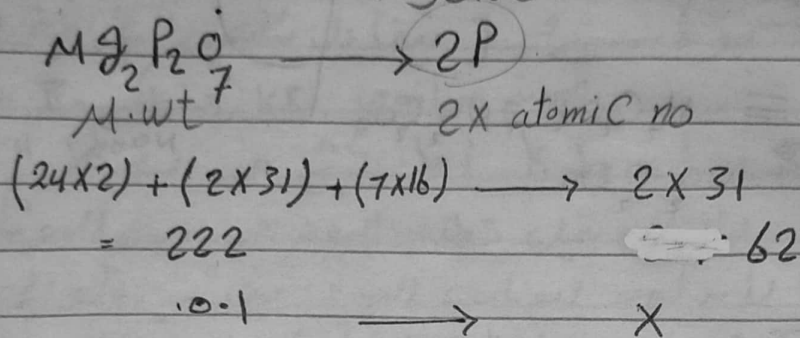 Mg₂P₂O₇ → 2P
M.wt 2x atomic no
(24x2) + (2x31) + (7x16) → 2x31
= 222 62
.0.1 → X